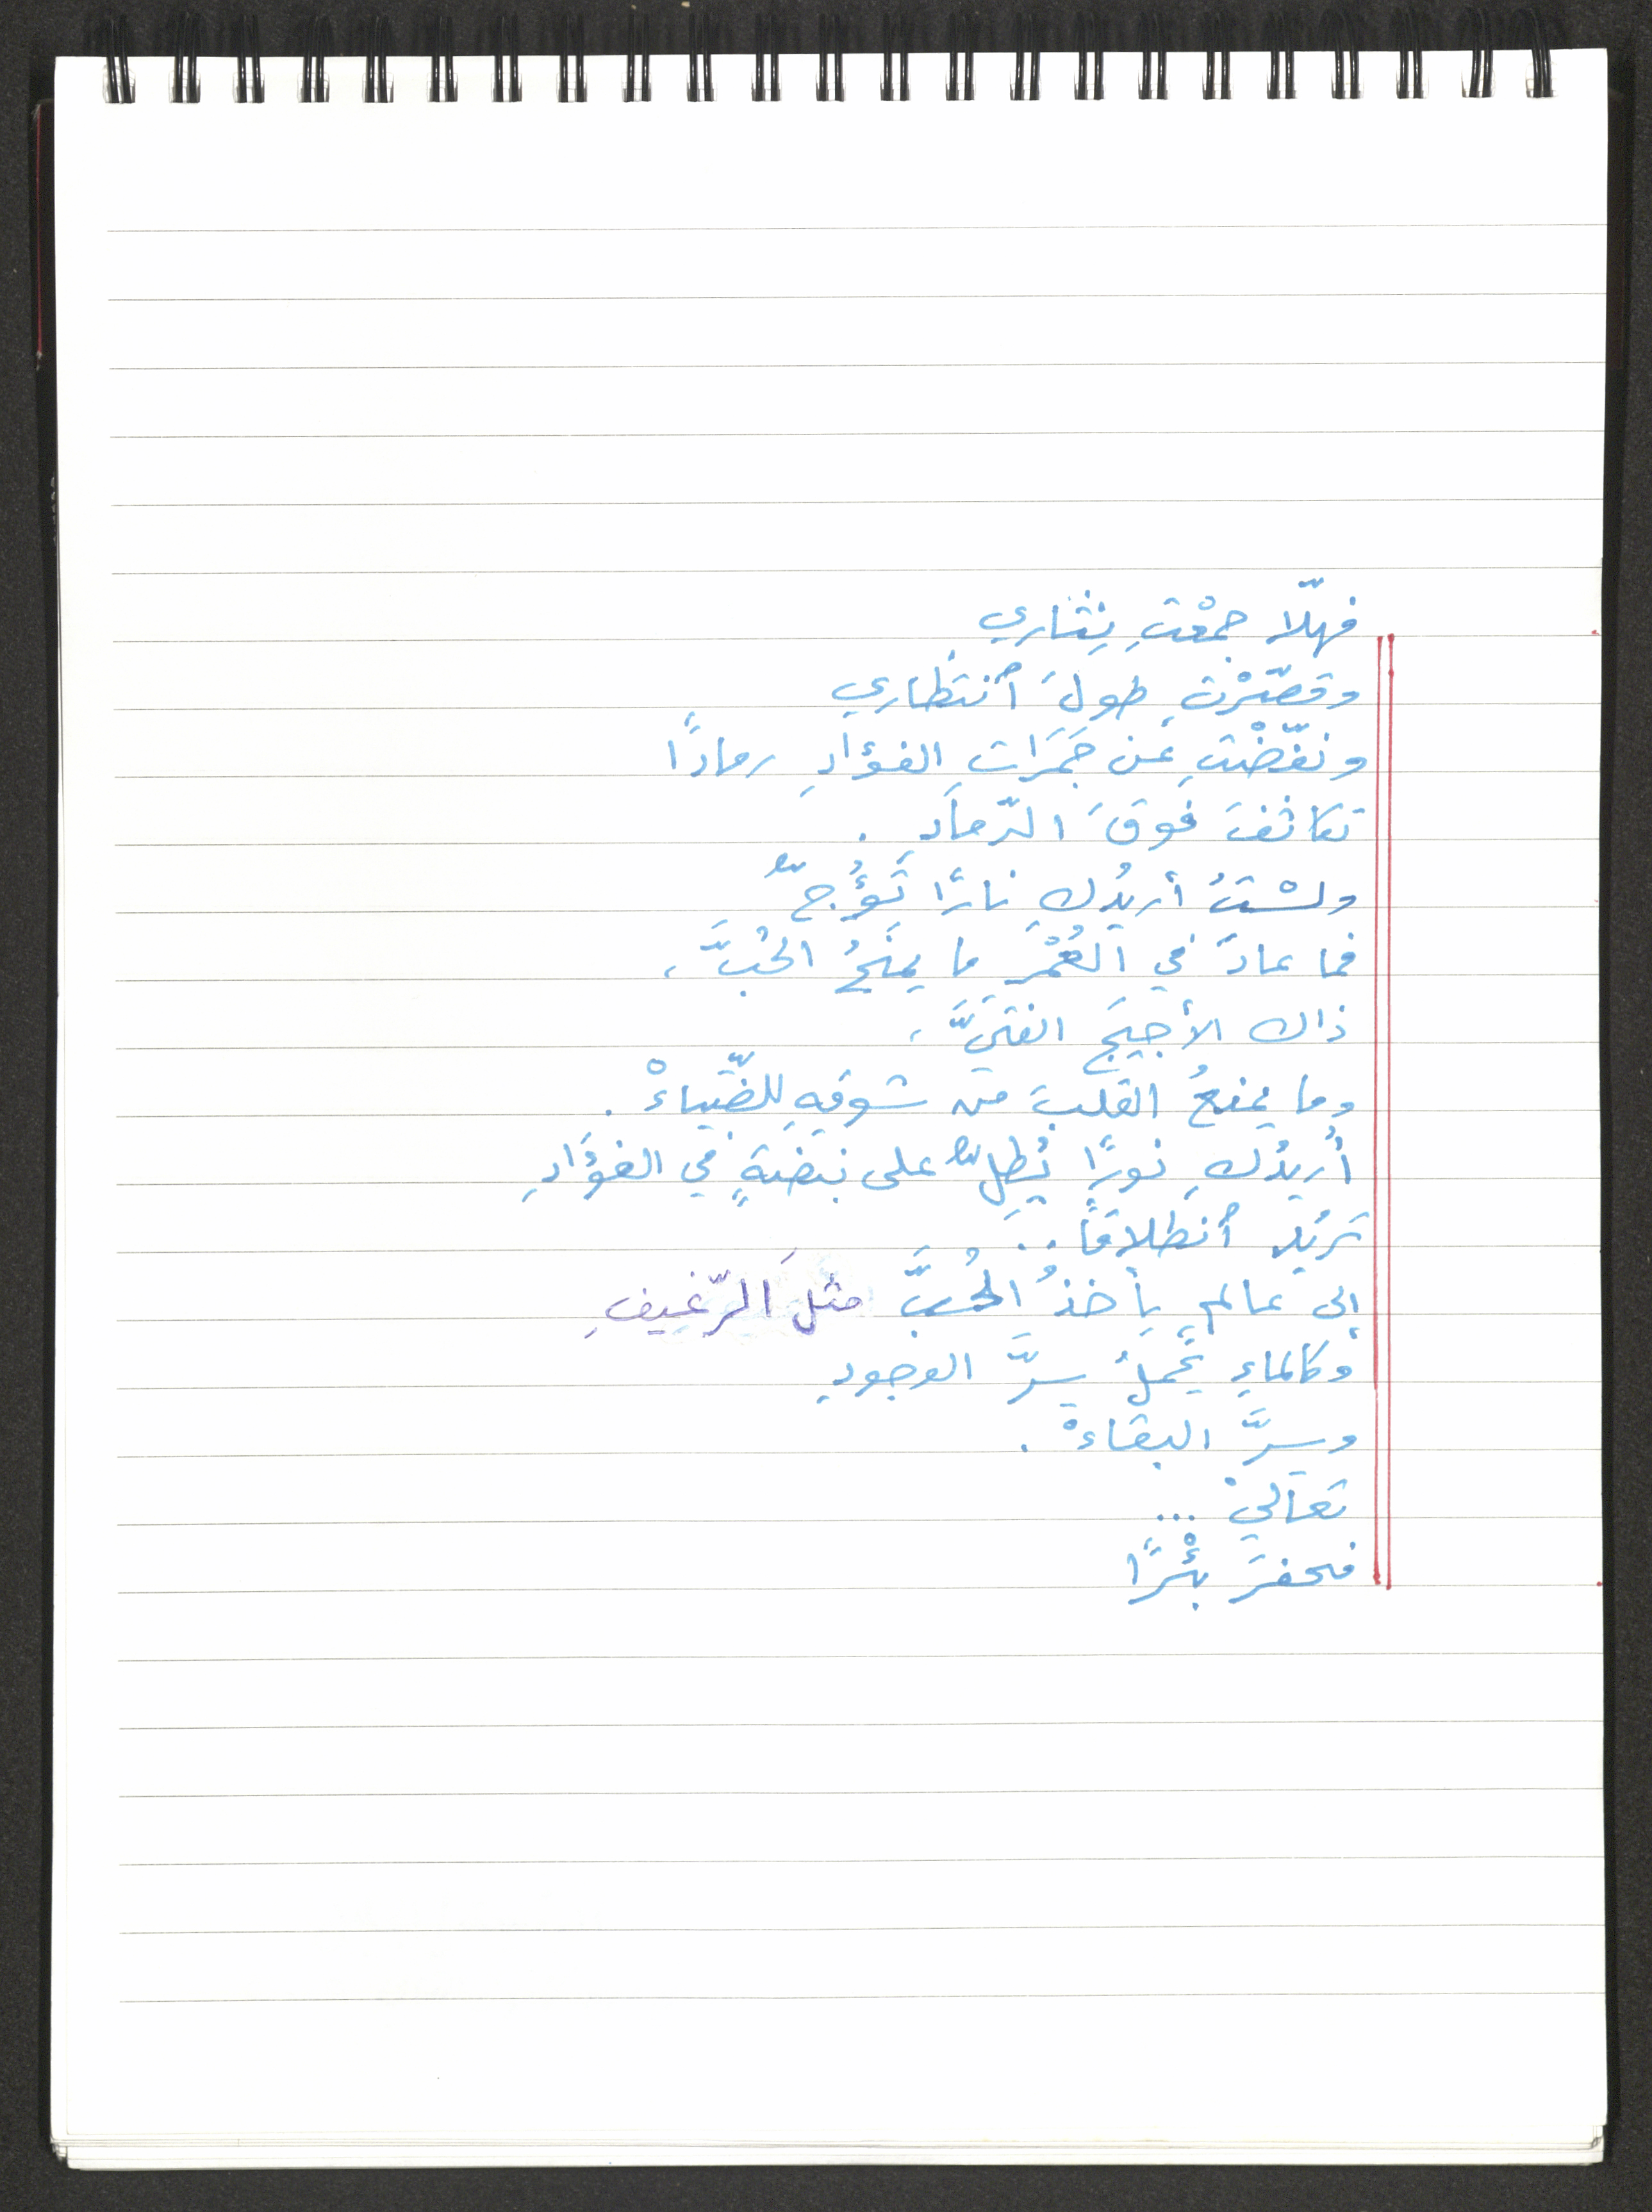 فهلّا جمعْتِ نِثاري
وقصّرْتِ طولَ ٱنتظاري
ونفّضْتِ عن جَمَراتِ الفؤادِ رمادًا
تكاثفَ فوقَ الرّمادِ .
ولسْتُ أريدُكِ نارًا تَؤُجّ
فما عادَ في العُمْرِ ما يمنَحُ الحُبَّ،
ذاك الأجيجَ الفتيَّ،
وما يمنعُ القلبَ من شوقِهِ للضّياءْ .
أُريدُكِ نورًا يُطِلّ على نبضةٍ في الفؤَادِ
تريدُ ٱنطلاقًا..
إلى عالمٍ يأخذُ الحُبَّ مثلَ الرّغيفِ
وكالماءِ يحملُ سِرَّ الوجودِ
وسِرَّ البقاءْ .
تعاليْ ...
فنحفرَ بئْرًا